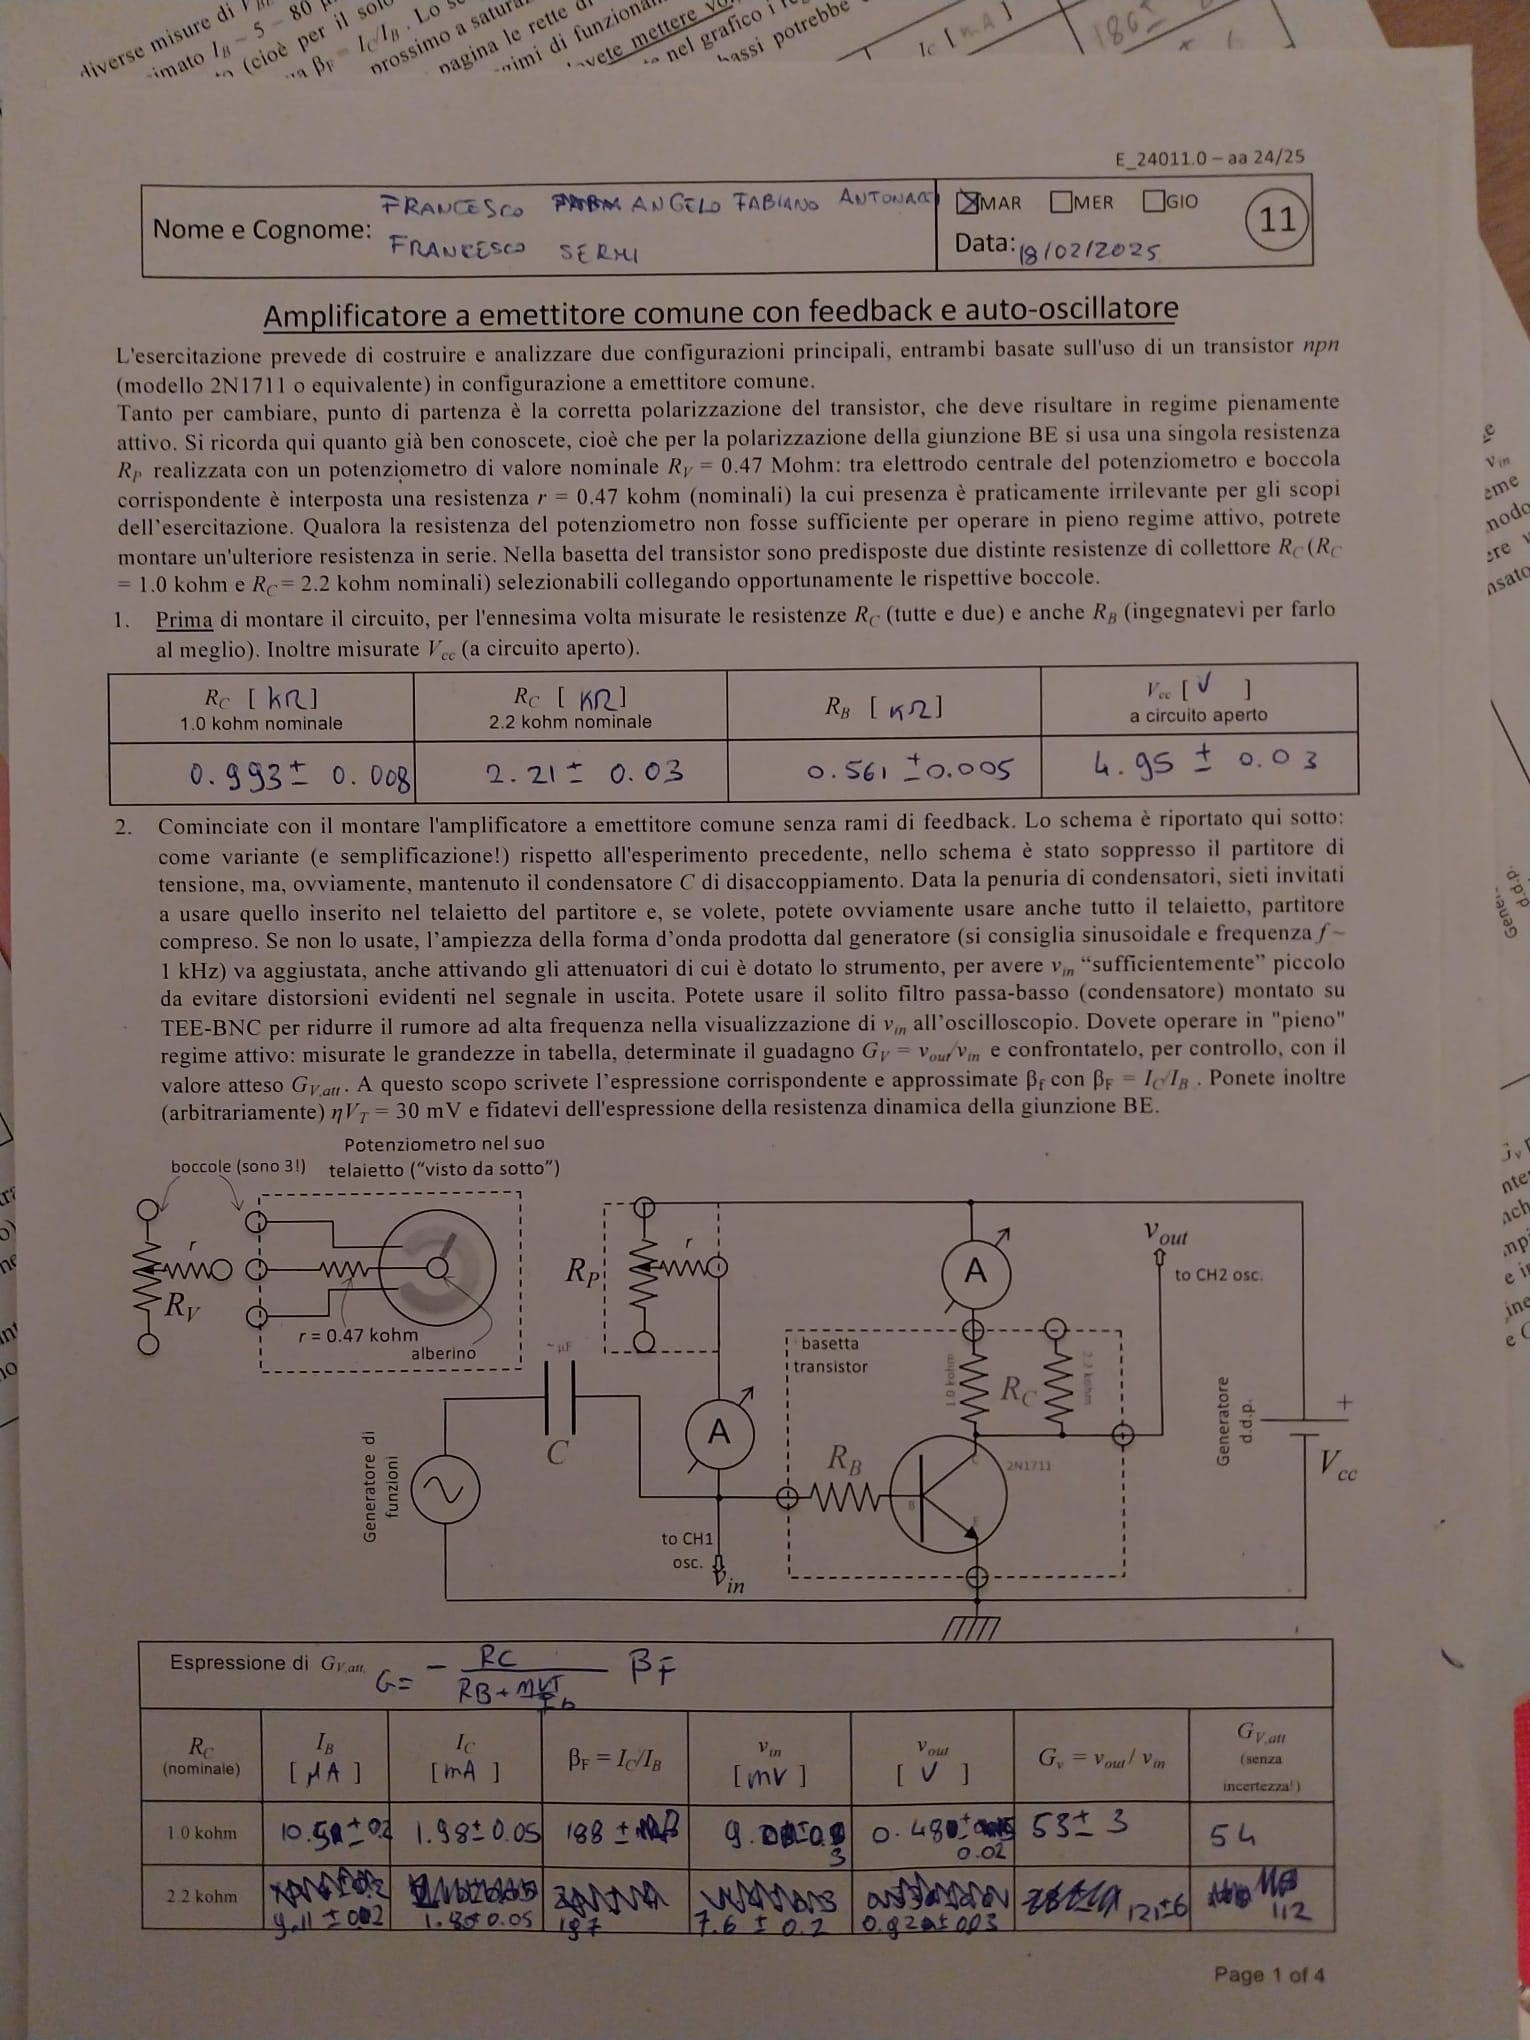 diverse misure di
imato IB ~ 5 – 80
(cioè per il solo
βF = IC/IB . Lo
prossimo a satura
pagina le rette di
imi di funziona
vete mettere
nel grafico i
bassi potrebbe
IC [mA]
186±
E_24011.0 – aa 24/25
Nome e Cognome: FRANCESCO ANGELO FABIANO ANTONACI
FRANCESCO SERMI
MAR MER GIO
Data: 18/02/2025
11
Amplificatore a emettitore comune con feedback e auto-oscillatore
L'esercitazione prevede di costruire e analizzare due configurazioni principali, entrambi basate sull'uso di un transistor npn
(modello 2N1711 o equivalente) in configurazione a emettitore comune.
Tanto per cambiare, punto di partenza è la corretta polarizzazione del transistor, che deve risultare in regime pienamente
attivo. Si ricorda qui quanto già ben conoscete, cioè che per la polarizzazione della giunzione BE si usa una singola resistenza
RP realizzata con un potenziometro di valore nominale RV = 0.47 Mohm: tra elettrodo centrale del potenziometro e boccola
corrispondente è interposta una resistenza r = 0.47 kohm (nominali) la cui presenza è praticamente irrilevante per gli scopi
dell'esercitazione. Qualora la resistenza del potenziometro non fosse sufficiente per operare in pieno regime attivo, potrete
montare un'ulteriore resistenza in serie. Nella basetta del transistor sono predisposte due distinte resistenze di collettore RC (RC
= 1.0 kohm e RC = 2.2 kohm nominali) selezionabili collegando opportunamente le rispettive boccole.
1. Prima di montare il circuito, per l'ennesima volta misurate le resistenze RC (tutte e due) e anche RB (ingegnatevi per farlo
al meglio). Inoltre misurate Vcc (a circuito aperto).
RC [ kΩ ] RC [ KΩ ] RB [ KΩ ] Vcc [ V ]
1.0 kohm nominale 2.2 kohm nominale a circuito aperto
0.993 ± 0.008 2.21 ± 0.03 0.561 ± 0.005 4.95 ± 0.03
2. Cominciate con il montare l'amplificatore a emettitore comune senza rami di feedback. Lo schema è riportato qui sotto:
come variante (e semplificazione!) rispetto all'esperimento precedente, nello schema è stato soppresso il partitore di
tensione, ma, ovviamente, mantenuto il condensatore C di disaccoppiamento. Data la penuria di condensatori, sieti invitati
a usare quello inserito nel telaietto del partitore e, se volete, potete ovviamente usare anche tutto il telaietto, partitore
compreso. Se non lo usate, l'ampiezza della forma d'onda prodotta dal generatore (si consiglia sinusoidale e frequenza f ~
1 kHz) va aggiustata, anche attivando gli attenuatori di cui è dotato lo strumento, per avere vin "sufficientemente" piccolo
da evitare distorsioni evidenti nel segnale in uscita. Potete usare il solito filtro passa-basso (condensatore) montato su
TEE-BNC per ridurre il rumore ad alta frequenza nella visualizzazione di vin all'oscilloscopio. Dovete operare in "pieno"
regime attivo: misurate le grandezze in tabella, determinate il guadagno GV = vout/vin e confrontatelo, per controllo, con il
valore atteso GV,att. A questo scopo scrivete l'espressione corrispondente e approssimate βf con βF = IC/IB . Ponete inoltre
(arbitrariamente) ηVT = 30 mV e fidatevi dell'espressione della resistenza dinamica della giunzione BE.
Potenziometro nel suo
boccole (sono 3!) telaietto ("visto da sotto")
r
RV
r = 0.47 kohm
alberino
RP
r
A
vout
to CH2 osc.
basetta
transistor
1.0 kohm
RC
2.2 kohm
~ µF
C
Generatore di
funzioni
A
RB
B
C
E
2N1711
to CH1
osc.
vin
Generatore
d.d.p.
+
Vcc
Espressione di GV,att. G= - RC / RB + ηVT/Ib βF
RC IB IC βF = IC/IB vin vout Gv = vout / vin GV,att
(nominale) [ µA ] [ mA ] [ mV ] [ V ] (senza
incertezza!)
1.0 kohm 1.98 ± 0.05 188 ± 0.02 53 ± 3 54
2.2 kohm 1.80 ± 0.05 197 7.6 ± 0.2 121±6 112
Page 1 of 4